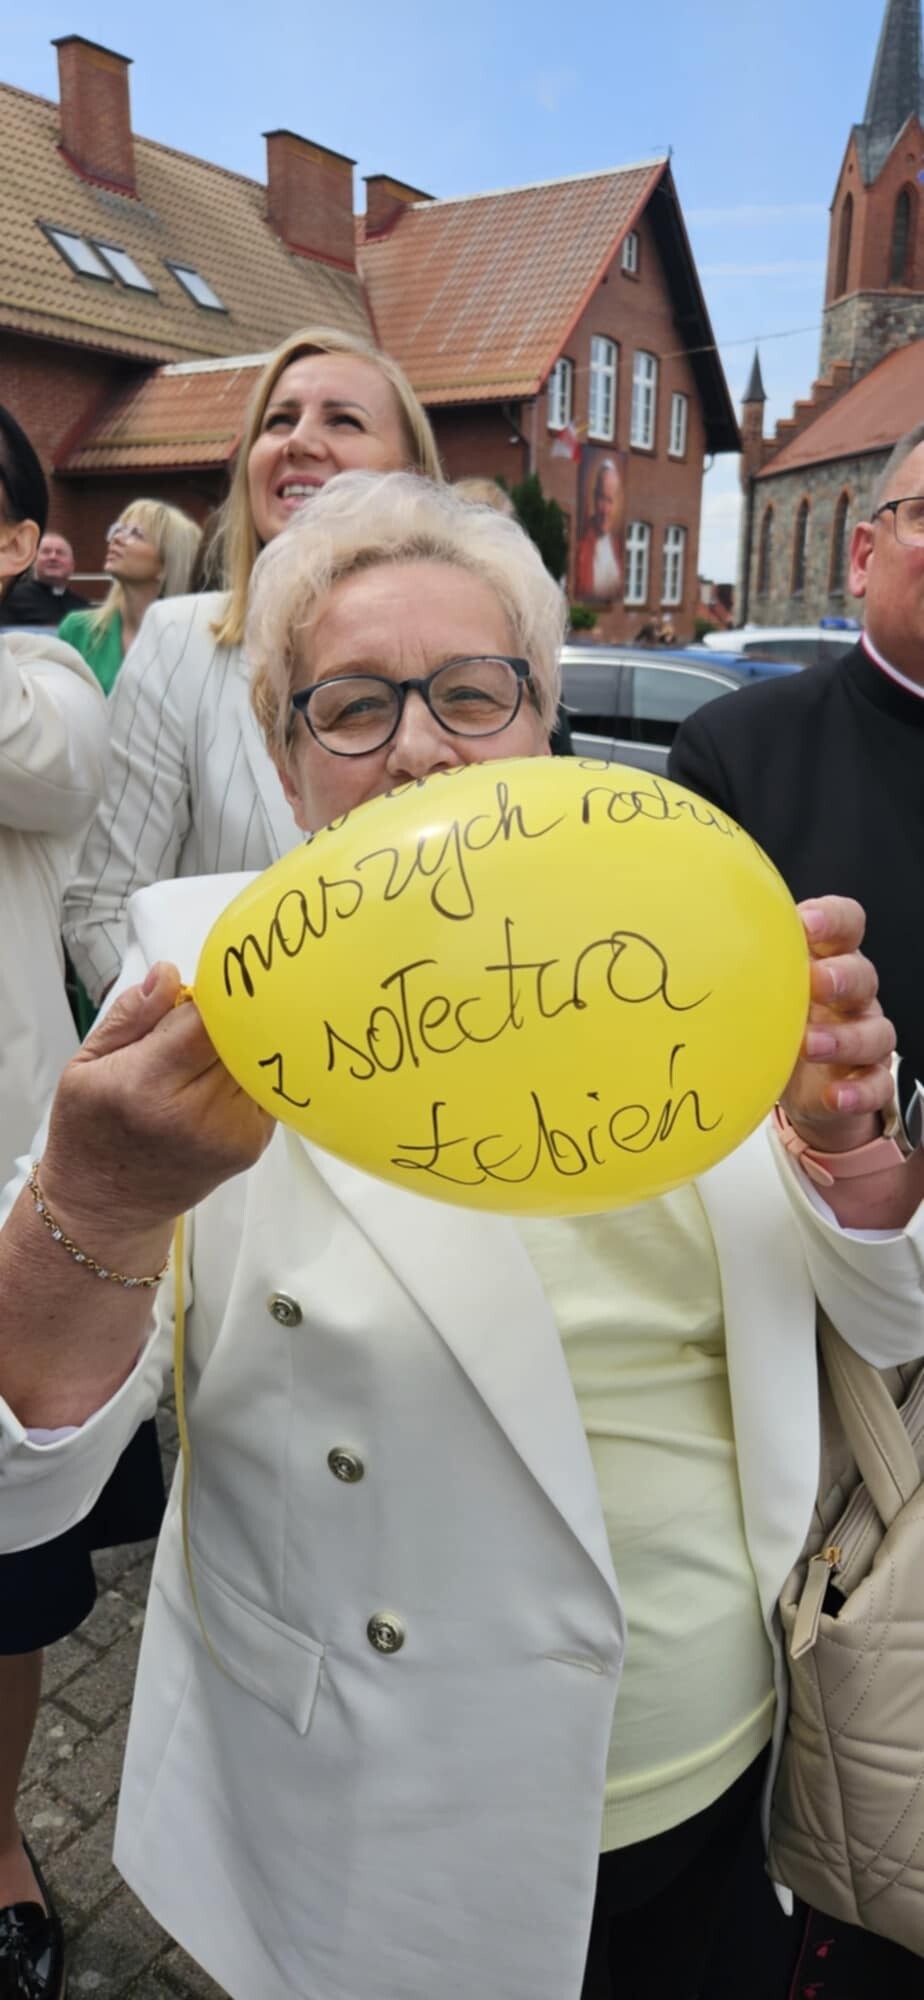 naszych rodzin
z sołectwa
Łebień